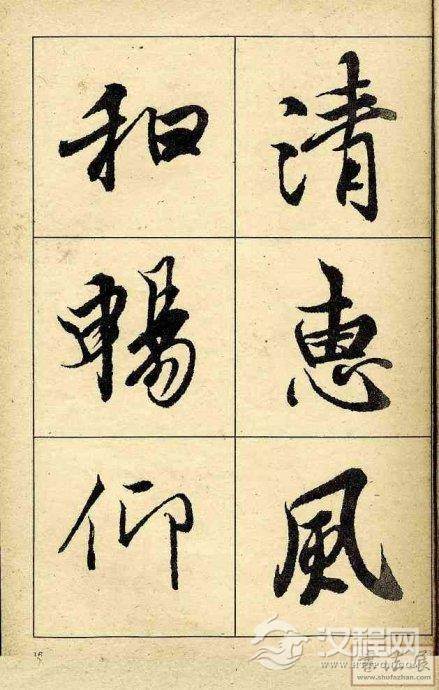 清惠風
和暢仰
16
汉程网
書法展
www.shufazhan.com